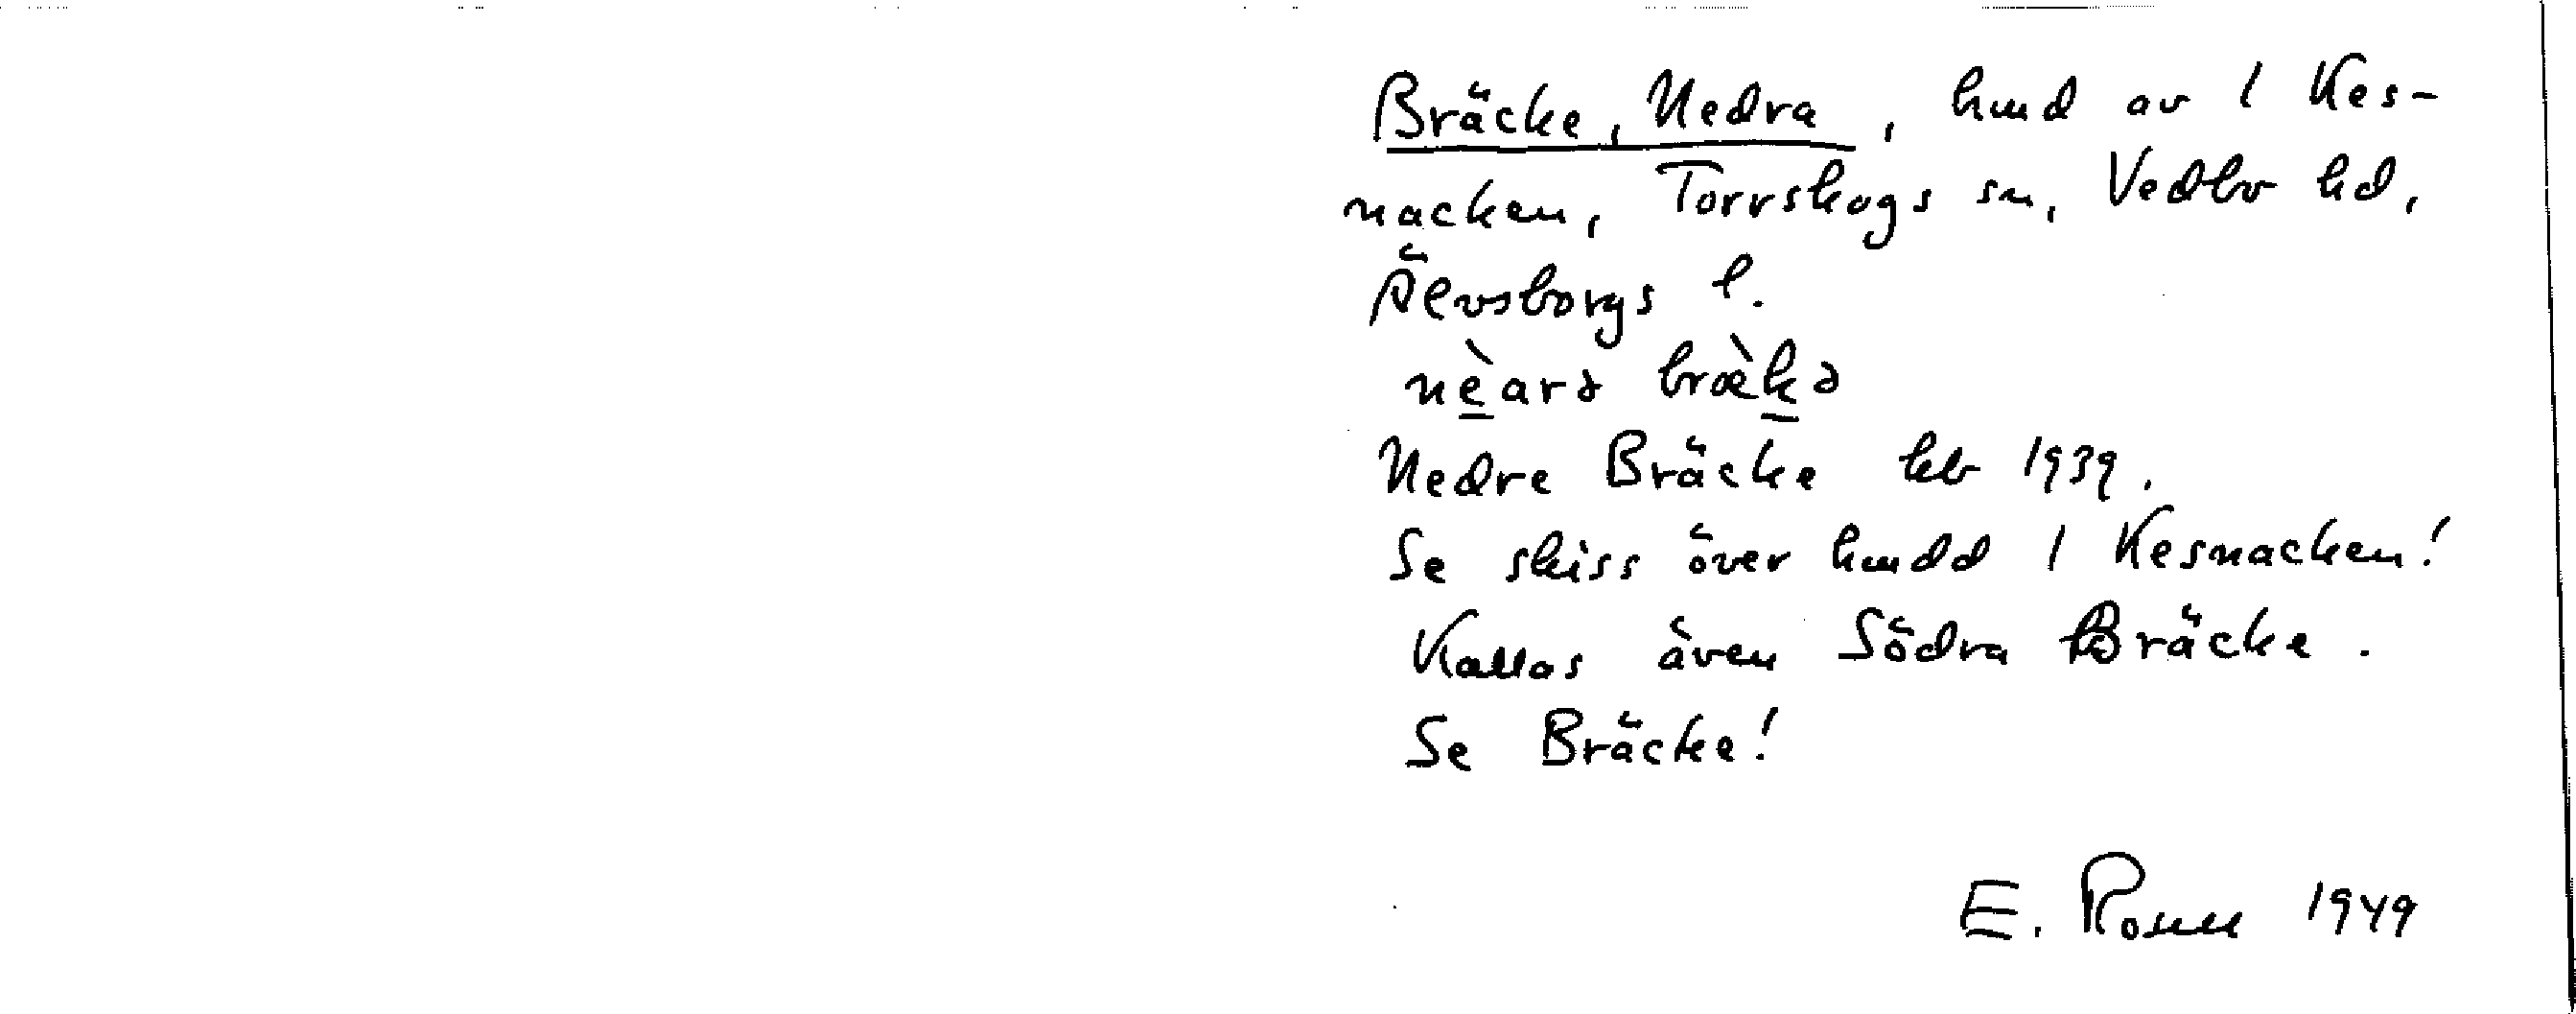 Bräcke, Nedra, hmd av 1 Kes-
nacken, Torrskogs sn, Vedbo hd,
Älvsborgs l.
nèarə bræ̀kə
Nedre Bräcke kb 1939.
Se skiss över hmdd 1 Kesnacken!
Kallas även Södra Bräcke.
Se Bräcke!
E. Rosén 1949